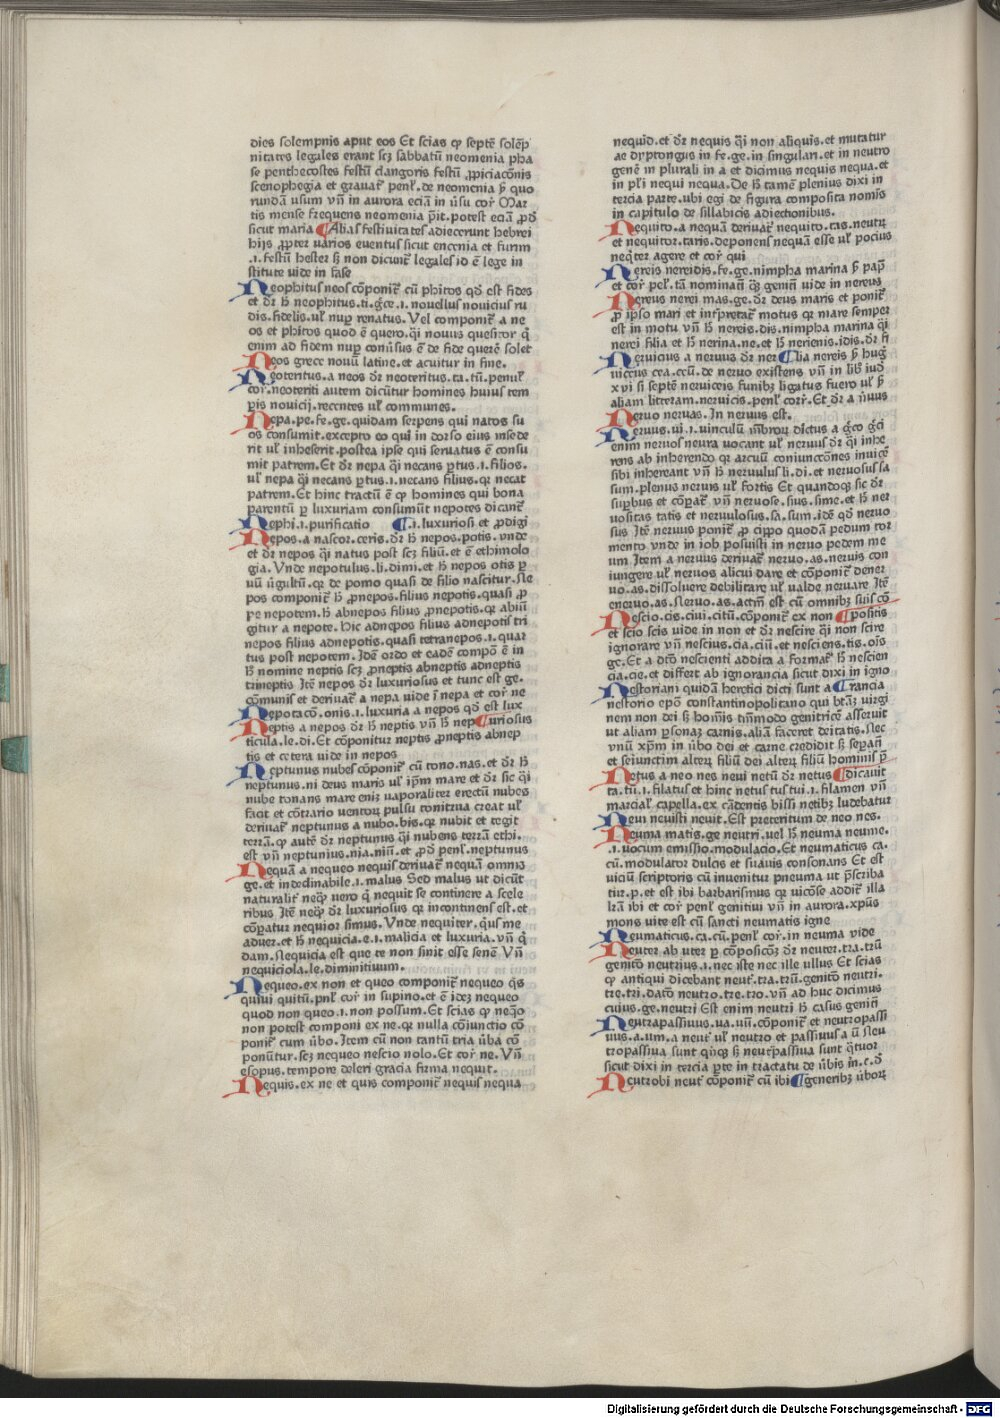 dies solempnis aput eos Et scias ꝙ septē solēp
nitates legales erant scꝫ sabbatū neomenia pha
se penthecostes festū clangoris festū ꝓpiciacōnis
scenophegia et grauat᷑ penl̓. de neomenia ꝑ quo
rundā usum vn̄ in aurora eciā in ūsu cor᷑ Mar
tis mense frequens neomenia p̄it. potest eciā ꝓd̓
sicut maria ¶Alias festiuitates adiecerunt hebrei
hijs ꝓpter varios euentus sicut encenia et furim
.i. festū hester sꝫ non dicunt᷑ legales id ē lege in
stitute uide in fase
Neophitus neos cōponit᷑ cū phitos qd̓ est fides
et dr̄ h̓ neophitus.ti.gc̄e.i. nouellus nouicius ru
dis.fidelis.ul̓ nuꝑ renatus. Vel componit᷑ a ne
os et phitos quod ē quero.qi̓ nouus quesitor q̓
enim ad fidem nuꝑ conūsus ē de fide querē solet
Neos grece nouū latine.et acuitur in fine.
Neotericus.a neos dr̄ neotericus.ca.cū.penul̓
cor᷑.neoterici autem dicūtur homines huius tem
ꝑis nouicij.recentes ul̓ communes.
Nepa.pe.fe.ge.quidam serpens qui natos su
os consumit.excepto eo qui in dorso eius insede
rit ul̓ inheserit.postea ipse qui seruatus ē consu
mit patrem. Et dr̄ nepa qi̓ necans ꝑtus.i.filios.
ul̓ nepa qi̓ necans ꝑtus.i.necans filius.qꝛ necat
patrem. Et hinc tractū ē ꝙ homines qui bona
parentū ꝑ luxuriam consumūt nepotes dicant᷑
Nephi.i.purificatio ¶.i.luxuriosi et ꝓdigi
Nepos.a nascor.ceris.dr̄ h̓ nepos.potis.vnde
et dr̄ nepos qi̓ natus post scꝫ filiū.et ē ethimolo
gia. Vnde nepotulus.li.dimi.et h̓ nepos otis ꝑ
uū ūgultū.qꝛ de pomo quasi de filio nascitur. Ne
pos componit᷑ h̓ ꝓnepos.filius nepotis.quasi ꝓ
pe nepotem. h̓ abnepos filius ꝓnepotis.qꝛ abiū
gitur a nepote. Hic adnepos filius adnepotis tri
nepos filius adnepotis.quasi tetranepos.i.quar
tus post nepotem. Idē ordo et eadē compō ē in
h̓ nomine neptis scꝫ ꝓneptis abneptis adneptis
trineptis Itē nepos dr̄ luxuriosus et tunc est ge.
cōmunis et deriuat᷑ a nepa uide ī nepa et cor᷑ ne
Nepotacō.onis.i.luxuria a nepos qd̓ est lux
Neptis a nepos dr̄ h̓ neptis vn̄ h̓ nep¶uriosus
ticula.le.di. Et cōponitur neptis ꝓneptis abnep
tis et cetera uide in nepos
Neptunus nubes cōponit᷑ cū tono.nas.et dr̄ h̓
neptunus.ni deus maris ul̓ ip̄m mare et dr̄ sic qi̓
nube tonans mare enīꝫ uaporaliter erectū nubes
facit et cōtrario uentoꝝ pulsu tonitrua creat ul̓
deriuat᷑ neptunus a nubo.bis.qꝛ nubit et tegit
terrā.ꝙ autē dr̄ neptunus qi̓ nubens terrā ethi.
est vn̄ neptunius.nia.niū.et ꝓd̓ penl̓.neptunus
Nequā a nequeo nequis deriuat᷑ nequā omnis
ge.et indeclinabile.i.malus Sed malus ut dicūt
naturalit᷑ neqꝫ uero q̓ nequit se continere a scele
ribus Itē neqꝫ dr̄ luxuriosus qꝛ incontinens est.et
cōꝑatur nequior simus. Vnde nequiter.qꝰus me
aduer.et h̓ nequicia.e.i.malicia et luxuria.vn̄ q̓
dam. Nequicia est que te non sinit esse senē Vn̄
nequiciola.le.diminitiuum.
Nequeo.ex non et queo componit᷑ nequeo q̓s
quiui quitū.pnl̓ cor᷑ in supino.et ē idez nequeo
quod non queo.i.non possum. Et scias ꝙ neqo̓
non potest componi ex ne.qꝛ nulla cōiunctio cō
ponit᷑ cum ūbo. Itcm cū non tantū tria ūba cō
ponūtur.scꝫ nequeo nescio nolo. Et cor᷑ ne. Vn̄
esopus.tempore deleri gracia firma nequit.
Nequis.ex ne et quis componit᷑ nequis nequa
nequid.et dr̄ nequis qi̓ non aliquis.et mutatur
ae dyptongus in fe.ge.in singulari.et in neutro
genē in plurali in a et dicimus nequis nequa.et
in pl̓i nequi nequa. De h̓ tamē plenius dixi in
tercia parte.ubi egi de figura composita nomīs
in capitulo de sillabicis adiectionibus.
Nequito.a nequā deriuat᷑ nequito.tas.neutꝝ
et nequitor.taris.deponens nequā esse ul̓ pocius
neqt̓er agere et cor᷑ qui
Nereis nereidis.fe.ge.nimpha marina ꝑ pap̄
et cor᷑ pel̓.tā nominatī qꝫ genitī uide in nereus
Nereus nerei mas.ge.dr̄ deus maris et ponit᷑
ꝓ ipso mari et inꝑretat᷑ motus qꝛ mare semper
est in motu vn̄ h̓ nereis.dis.nimpha marina qi̓
nerei filia et h̓ nerina.ne.et h̓ nerienis.idis.dr̄ fi
Neruicius a neruus dr̄ ner ¶lia nereis ꝑ hug̓
uiceus cea.ceū.de neruo existens vn̄ in lib̓ iud̓
xvi si septē neruiceis funibꝫ ligatus fuero ul̓ ꝑ
aliam litteram.neruicis.penl̓ cor᷑. Et dr̄ a n̄uus
Neruo neruas. In neruus est.
Neruus.ui.i.uinculū mēbroꝝ dictus a gc̄o gc̄i
enim neruos neura uocant ul̓ neruus dr̄ qi̓ inhe
rens ab inherendo qꝛ artuū coniunctiones inuicē
sibi inhereant vn̄ h̓ neruulus li.di.et neruosus sa
sum.plenus neruis ul̓ fortis Et quandoqꝫ sic dr̄
suꝑbus et cōꝑat᷑ vn̄ neruose.sius.sime.et h̓ ner
uositas tatis et neruulosus.sa.sum.idē qd̓ neruo
sus Itē neruus ponit᷑ ꝓ cippo quodā pedum tor
mento vnde in iob posuisti in neruo pedem me
um Item a neruus deriuat᷑ neruo.as.neruis con
iungere ul̓ neruos alicui dare et cōponit᷑ dener
uo.as.dissoluere debilitare ul̓ ualde neruare Itē
eneruo.as. Neruo.as.actm̄ est cū omnibꝫ suis cō
Nescio.cis.ciui.citū.cōponit᷑ ex non ¶positis
et scio scis uide in non et dr̄ nescire qi̓ non scire
ignorare vn̄ nescius.cia.ciū.et nesciens.tis.oīs
ge. Et a dt̄o nescienti addita a format᷑ h̓ nescien
cia.cie.et differt ab ignorancia sicut dixi in igno
Nestoriani quidā heretici dicti sunt a ¶rancia
nestorio ep̄o constantinopolitano qui btāꝫ uirgi
nem non dei sꝫ hoīs tm̄modo genitricē asseruit
ut aliam ꝑsonaꝫ carnis.aliā faceret deitatis. Nec
vnū xp̄m in ūbo dei et carne credidit sꝫ seꝑatī
et seiunctim alterꝫ filiū dei alterꝫ filiū hominis p̄
Netus a neo nes neui netū dr̄ netus ¶dicauit
ta.tū.i.filatus et hinc netus tus tui.i.filamen vn̄
marcial̓ capella.ex cādentis bissi netibꝫ ludebatur
Neui neuisti neuit. Est preteritum de neo nes.
Neuma matis.ge neutri.uel h̓ neuma neume.
.i.uocum emissio.modulacio. Et neumaticus ca.
cū.modulator dulcis et suauis consonans Et est
uiciū scriptoris cū inuenitur pneuma ut p̄scriba
tur.p.et est ibi barbarismus qꝛ uiciose addit᷑ illa
lr̄a ibi et cor᷑ penl̓ genitiui vn̄ in aurora.xpūs
mons uite est cū sancti neumatis igne
Neumaticus.ca.cū.penl̓ cor᷑.in neuma vide
Neuter ab uter ꝑ cōposicōꝫ dr̄ neuter.tra.trū
genitō neutrius.i.nec iste nec ille ullus Et scias
ꝙ antiqui dicebant neut᷑.tra.trū.genitō neutri.
tre.tri.datō neutro.tre.tro.vn̄ ad huc dicimus
cuius.ge.neutri Est enim neutri h̓ casus genitī
Neutrapassiuus.ua.uū.cōponit᷑ et neutropassi
uus.a.um.a neut᷑ ul̓ neutro et passiuus a ū Neu
tropassiua sunt qn̄qꝫ sꝫ neutꝑassiua sunt qt̓uor
sicut dixi in tercia ꝑte in tractatu de ūbis in.c.d̓
Neutrobi neut᷑ cōponit᷑ cū ibi ¶generibꝫ ūboꝝ
Digitalisierung gefördert durch die Deutsche Forschungsgemeinschaft - DFG